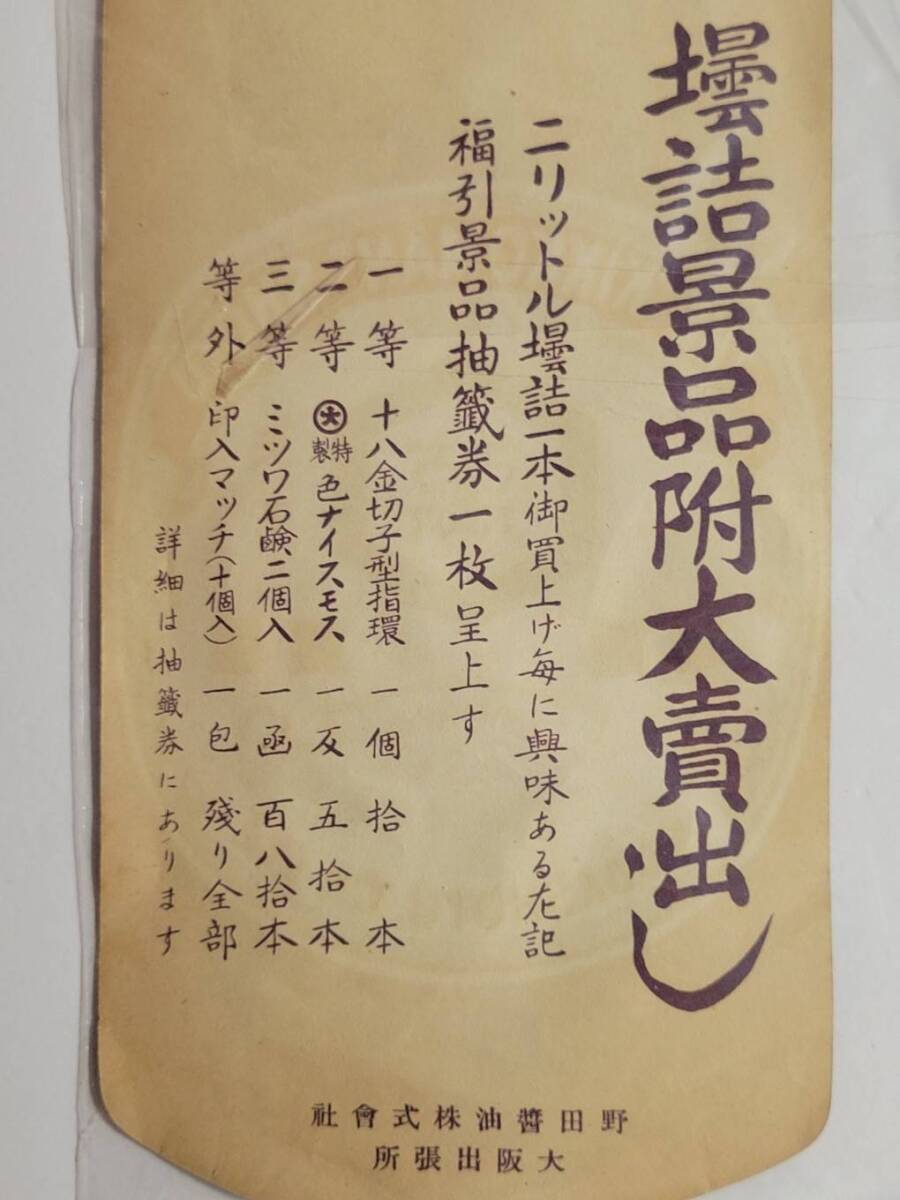 壜詰景品附大賣出し
二リットル壜詰一本御買上げ毎に興味ある左記
福引景品抽籤券一枚呈上す
一等 十八金切子型指環 一個 拾本
二等 ㊛特製 色ナイスモス 一反 五拾本
三等 ミツワ石鹸二個入 一函 百八拾本
等外 印入マッチ(十個入) 一包 残り全部
詳細は抽籤券にあります
野田醬油株式會社
大阪出張所